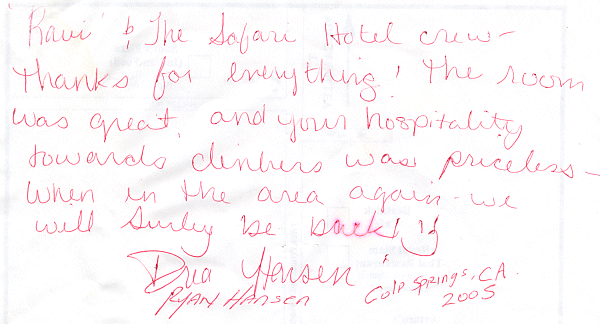 Ravi & The Safari Hotel crew-
thanks for everything! The room
was great, and your hospitality
towards climbers was priceless-
when in the area again-we
will Surley be back! !
Dria Hansen
RYAN HANSEN Cold Springs, CA.
2005